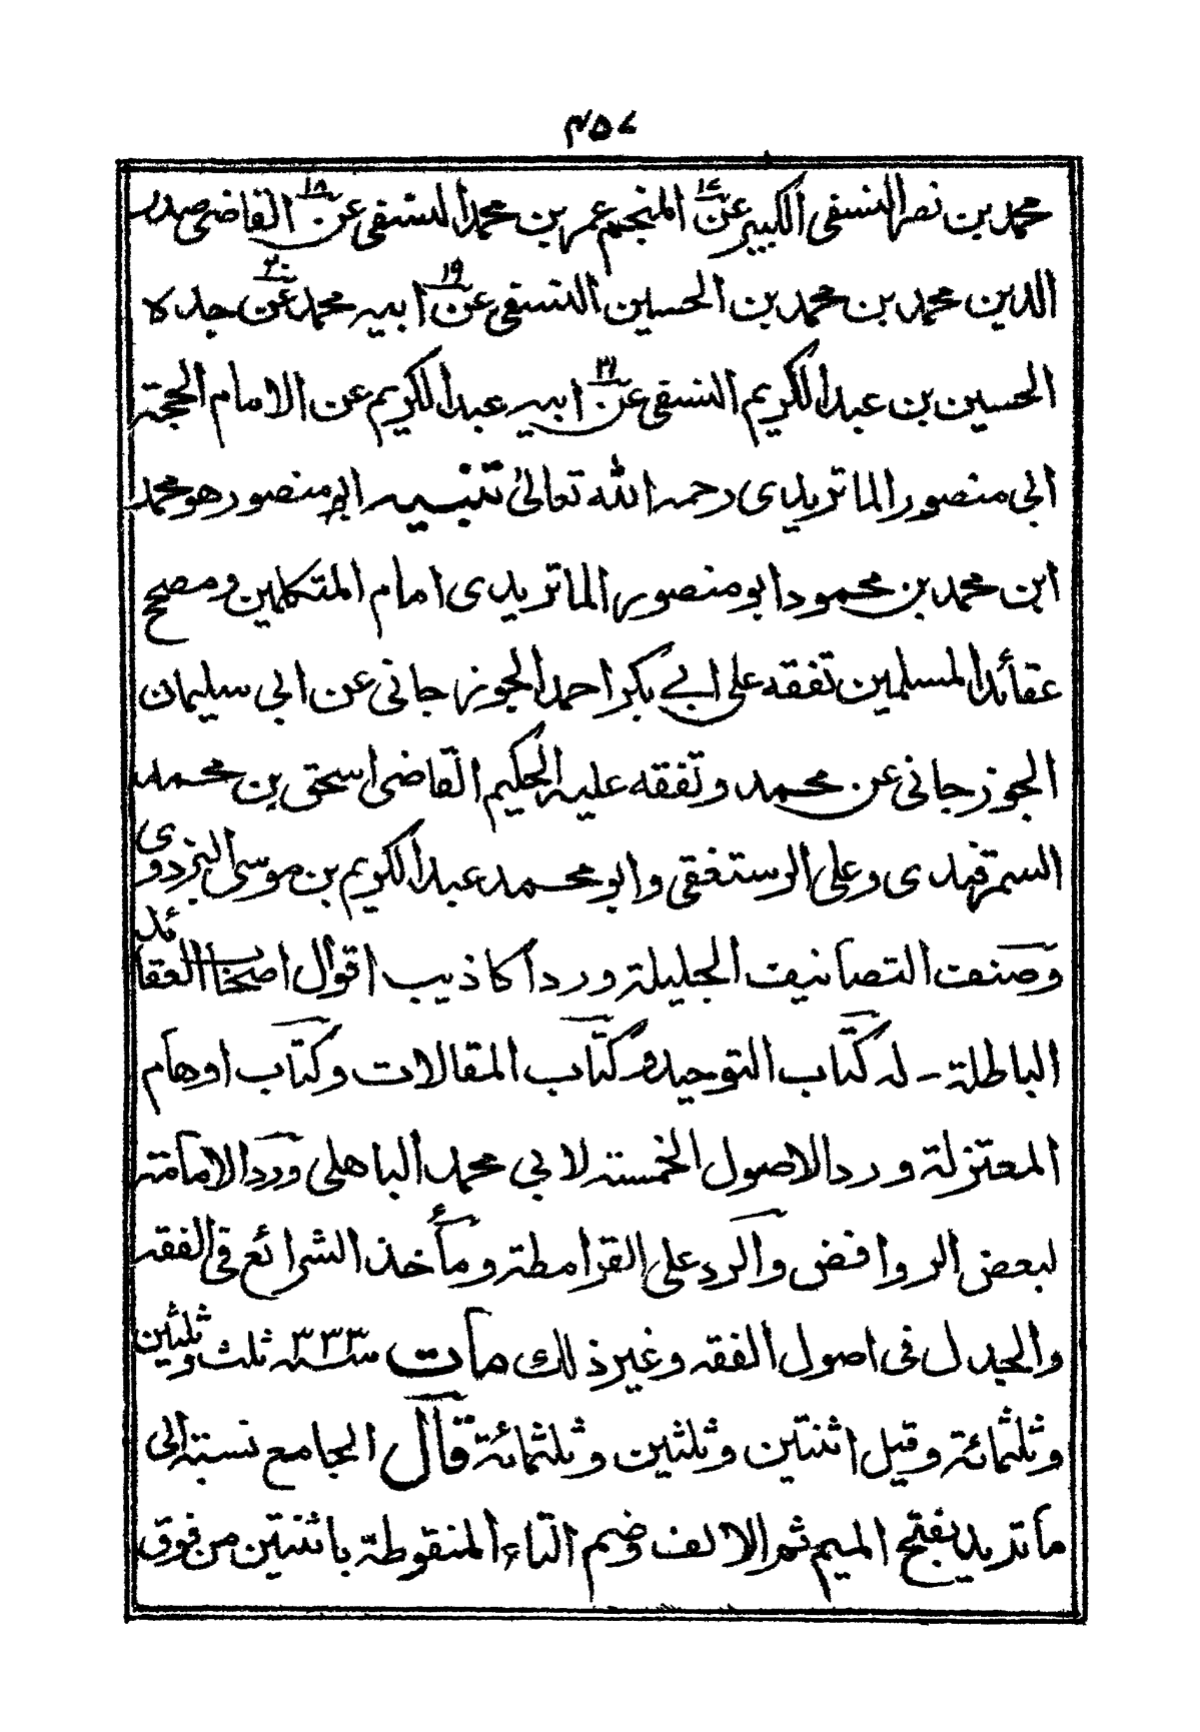 ٣٥٧
محمد بن نصر النسفی الکبیر عن١٧ المنجم عمر بن محمد النسفی عن١٨ القاضی صدر
الدین محمد بن محمد بن الحسین النسفی عن١٩ ابیه محمد عن٢٠ جده
الحسین بن عبد الکریم النسفی عن٢١ ابیه عبد الکریم عن الامام الحجة
ابی منصور الماتریدی رحمه الله تعالیٰ تنبیه ابو منصور هو محمد
ابن محمد بن محمود ابو منصور الماتریدی امام المتکلمین ومصحح
عقائد المسلمین تفقه علی ابی بکر احمد الجوزجانی عن ابی سلیمان
الجوزجانی عن محمد وتفقه علیه الحکیم القاضی اسحق بن محمد
السمرقندی وعلی الرستغفی وابو محمد عبد الکریم بن موسی البزدوی
وصنف التصانیف الجلیلة ورد اکاذیب اقوال اصحاب العقائد
الباطلة - له کتاب التوحید وکتاب المقالات وکتاب اوهام
المعتزلة ورد الاصول الخمسة لابی محمد الباهلی ورد الامامة
لبعض الروافض والرد علی القرامطة ومأخذ الشرائع فی الفقه
والجدل فی اصول الفقه وغیر ذلك مات سنة ٣٣٣ ثلث وثلثین
وثلثمائة وقیل اثنتین وثلثین وثلثمائة قال الجامع نسبته الی
ماترید بفتح المیم ثم الالف وضم التاء المنقوطة باثنتین من فوق